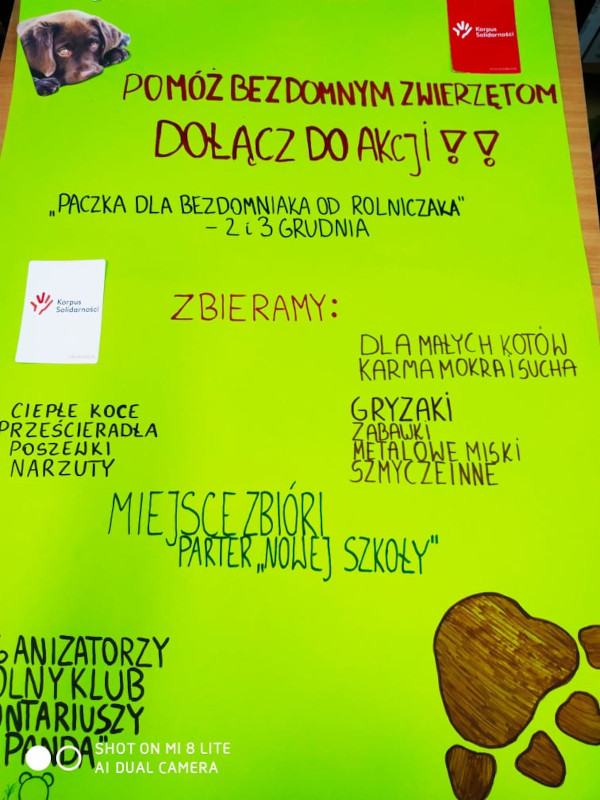 Korpus
Solidarności
POMÓŻ BEZDOMNYM ZWIERZĘTOM
DOŁĄCZ DO AKCJI !!
„PACZKA DLA BEZDOMNIAKA OD ROLNICZAKA"
– 2 i 3 GRUDNIA
Korpus
Solidarności
ZBIERAMY:
DLA MAŁYCH KOTÓW
KARMA MOKRA I SUCHA
CIEPŁE KOCE
PRZEŚCIERADŁA
POSZEWKI
NARZUTY
GRYZAKI
ZABAWKI
METALOWE MISKI
SZMYCZE INNE
MIEJSCE ZBIÓRI
PARTER „NOWEJ SZKOŁY"
GANIZATORZY
OLNY KLUB
NTARIUSZY
PANDA"
SHOT ON MI 8 LITE
AI DUAL CAMERA